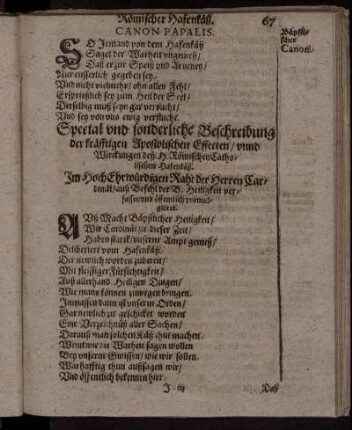 Römischer Hasenkäß.
67
CANON PAPALIS.
Bäpstli-
scher
Canon.
SO Jemand von dem Hasenkäß
Saget der Warheit vngemeß/
Daß er zur Speiß vnd Artzeney/
Nur eusserlich gegeben sey.
Vnd nicht vielmehr/ ohn allen Fehl/
Ersprießlich sey zum Heil der Seel/
Derselbig muß seyn gar verflucht/
Vnd sey von vns ewig verflucht.
Special vnd sonderliche Beschreibung
der kräfftigen Apostolischen Effecten/ vnnd
Wirckungen deß H. Römischen Catho-
lischen Hasenkäß.
Im HochEhrwürdigen Raht der Herren Car-
dinäl/ auß Befehl der B. Heiligkeit ver-
fasset/ vnd öffentlich promul-
gieret.
AVß Macht Bäpstlicher Heiligkeit/
Wir Cardinäl zu dieser Zeit/
Haben starck/ vnserm Ampt gemeß/
Deliberiert vom Hasenkäß.
Der newlich worden zubereit/
Mit fleissiger Fürsichtigkeit/
Auß allerhand Heiligen Dingen/
Wie mans können zuwegen bringen.
Inmassen dann ist vnserm Orden/
Gar newlich zu geschicket worden
Ein Verzeichnüß aller Sachen/
Darauß man solchen Käß thut machen.
Wenn wir die Warheit sagen wollen
Bey vnserm Gwissen/ wie wir sollen.
Warhafftig thun außsagen wir/
Vnd öffentlich bekennen hier.
J iij
Daß